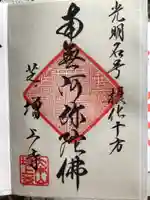 光明名号摂化十方
南無阿弥陀佛
芝増上寺